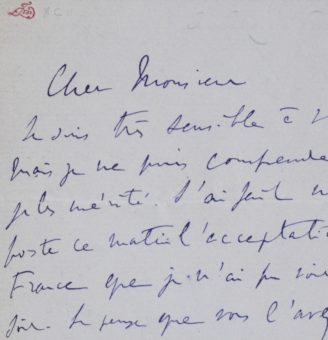 Cher Monsieur
Je suis très sensible à
Mais je ne puis comprendre
plus mérité. J'ai fait
poste ce matin l'acceptatio
France que je n'ai pu voir
soir. Je pense que vous l'avez